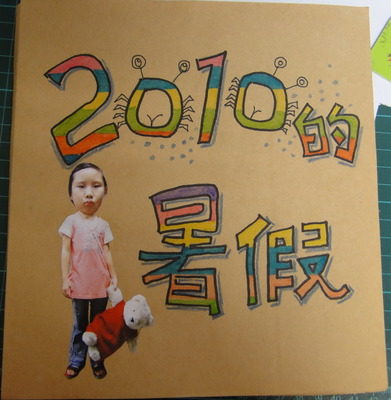 2010的
暑假